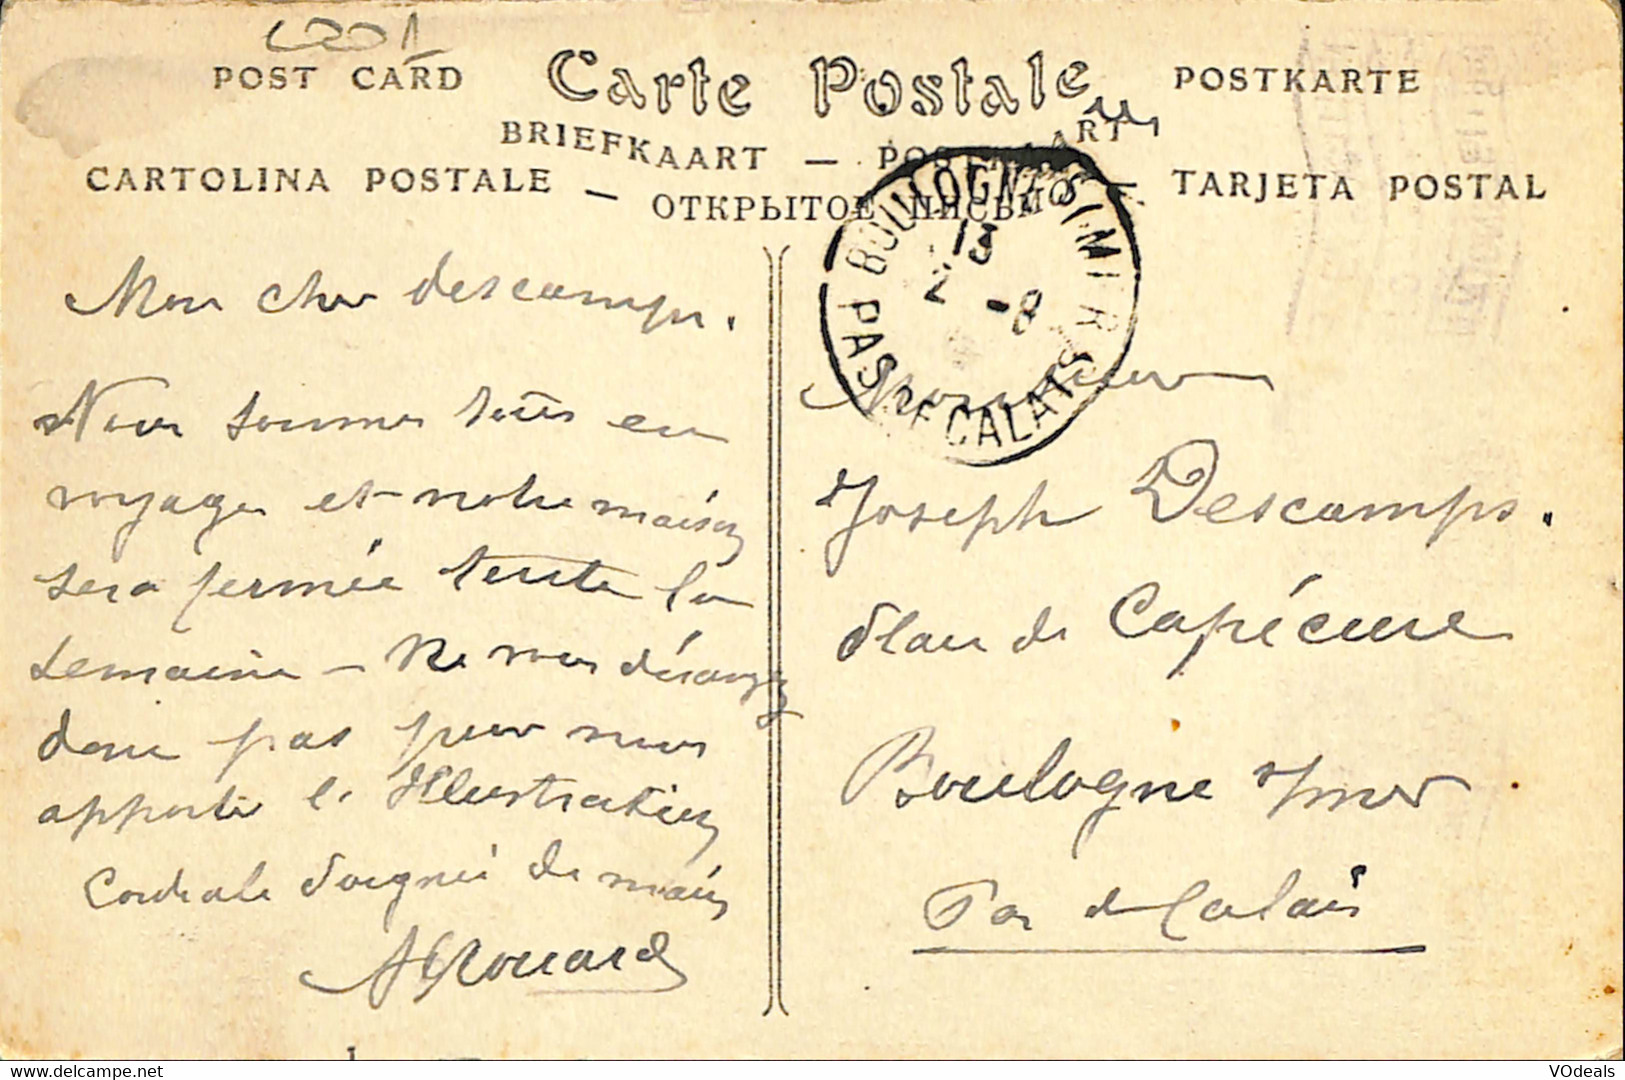 POST CARD Carte Postale POSTKARTE
BRIEFKAART — POSTKAART
CARTOLINA POSTALE — ОТКРЫТОЕ ПИСЬМО — TARJETA POSTAL
BOULOGNE S/MER
13
2 -8
PAS DE CALAIS
Mon cher descamps.
Nous sommes tous en
voyage et notre maison
sera fermée toute la
semaine — Ne vous dérangez
donc pas pour nous
apporter l'Illustration
Cordiale Poignée de main
Monsieur
Joseph Descamps.
Place de Capécure
Boulogne s/mer
Pas de Calais
delcampe.net
VOdeals